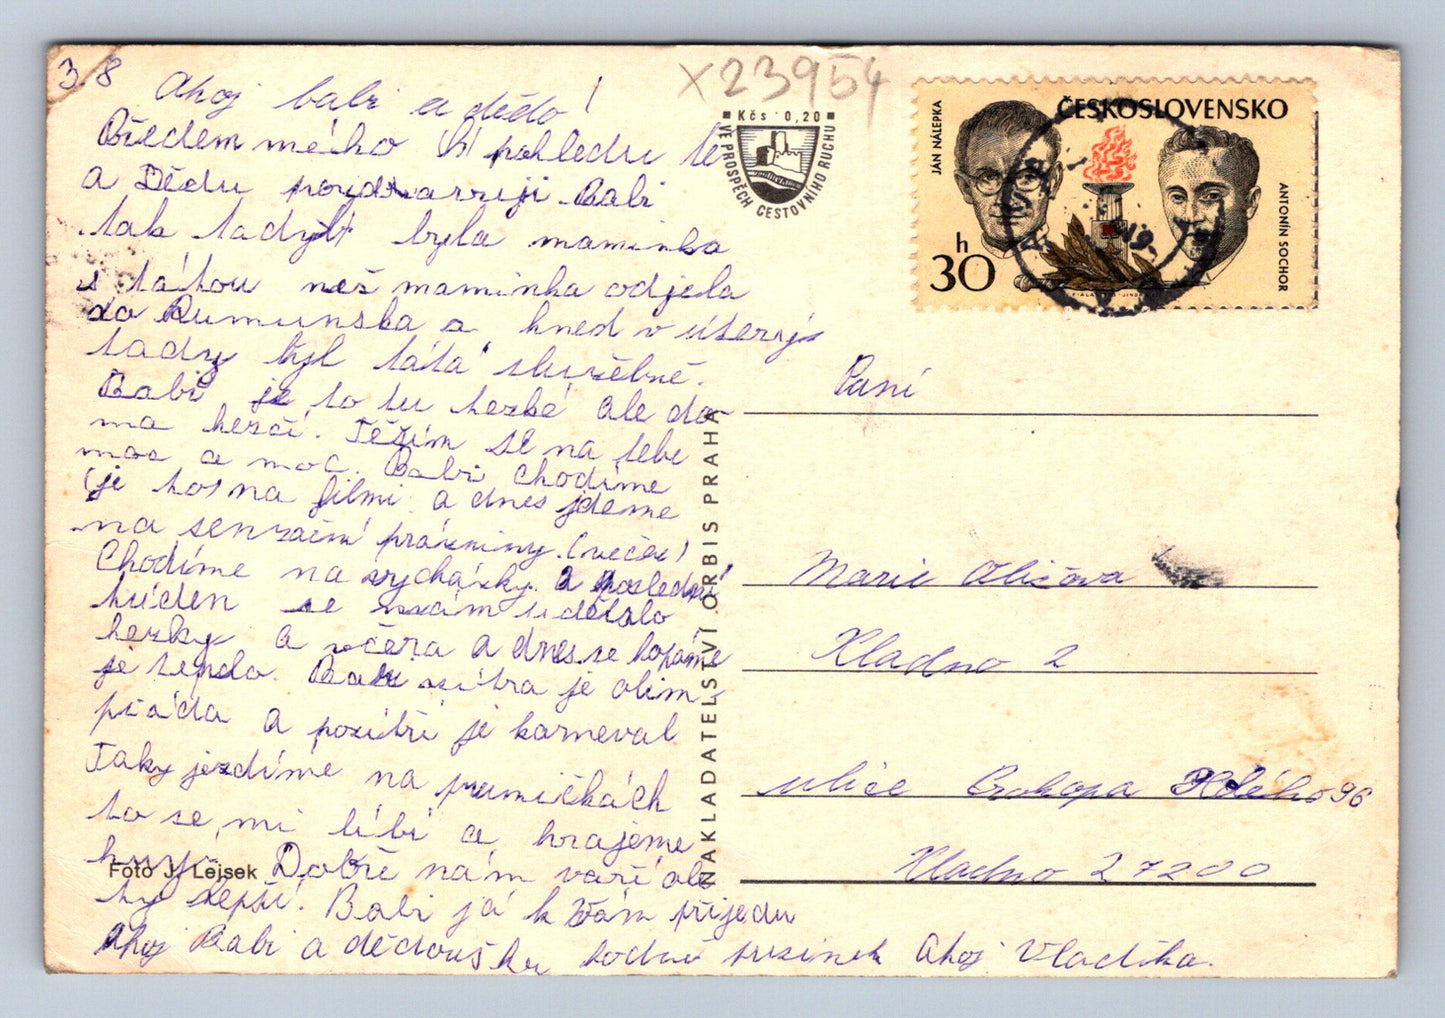 3.8
Ahoj babi a dědo!
Předem mého pohledu Tě
a Dědu pozdravuji. Babi
tak tady byla maminka
s tátou než maminka odjela
do Rumunska a hned v úterý
tady byl táta služebně.
Babi je to tu hezké ale do-
ma hezčí. Těším se na tebe
moc a moc. Babi chodíme
na filmi a dnes jdeme
na senzační prázniny. (večer)
Chodíme na vycházky. a poslední
týden se nám udělalo
hezky a včera a dnes se kopáme
je teplo. Babi zítra je olim-
piáda a pozítří je karneval
Taky jezdíme na pramičkách
to se mi líbí a hrajeme
hry. Dobře nám vaří ale
ty lepší. Babi já k Vám přijedu
Ahoj Babi a dědoušku hodně pusinek Ahoj Vladíka.
Foto J. Lejsek
X23954
Kčs 0,20
VE PROSPĚCH CESTOVNÍHO RUCHU
ČESKOSLOVENSKO
JÁN NÁLEPKA
ANTONÍN SOCHOR
30 h
NAKLADATELSTVÍ ORBIS PRAHA
Paní
Marie
Kladno 2
ulice Prokopa Holého 96
Kladno 27200